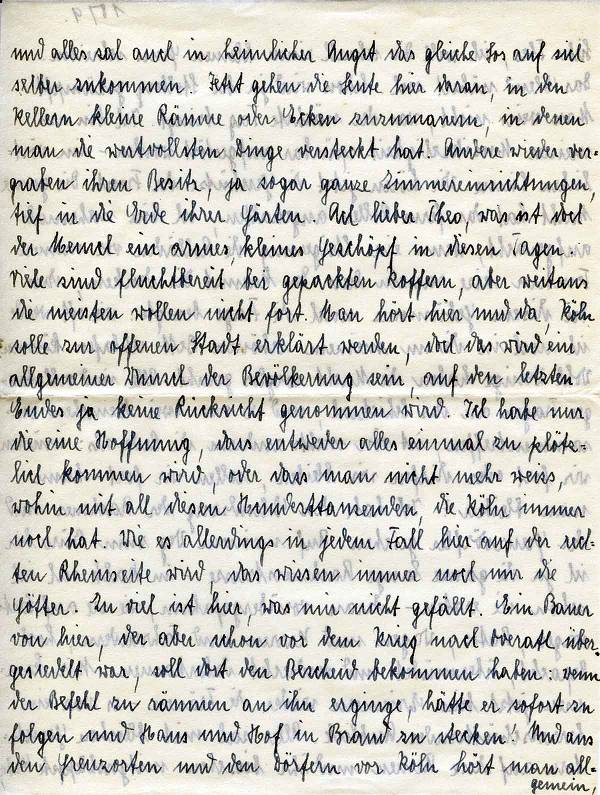 und alles sah auch in heimlicher Angst das gleiche Los auf sich
selber zukommen. Jetzt gehen die Leute hier daran, in den
Kellern kleine Räume oder Ecken zuzumauern, in denen
man die wertvollsten Dinge versteckt hat. Andere wieder ver-
graben ihren Besitz, ja sogar ganze Zimmereinrichtungen,
tief in die Erde ihrer Gärten. Ach lieber Theo, was ist doch
der Mensch ein armes, kleines Geschöpf in diesen Tagen.
Viele sind fluchtbereit bei gepackten Koffern, aber weitaus
die meisten wollen nicht fort. Man hört hier und da, Köln
solle zur offenen Stadt erklärt werden, doch das wird ein
allgemeiner Wunsch der Bevölkerung sein, auf den letzten
Endes ja keine Rücksicht genommen wird. Ich habe nur
die eine Hoffnung, dass entweder alles einmal zu plötz-
lich kommen wird, oder dass man nicht mehr weiss,
wohin mit all diesen Hunderttausenden, die Köln immer
noch hat. Wie es allerdings in jedem Fall hier auf der rech-
ten Rheinseite wird, das wissen immer noch nur die
Götter. Zu viel ist hier, was mir nicht gefällt. Ein Bauer
von hier, der aber schon vor dem Krieg nach Overath über-
gesiedelt war, soll dort den Bescheid bekommen haben: wenn
der Befehl zu räumen an ihn erginge, hätte er sofort zu
folgen und Haus und Hof in Brand zu stecken! Und aus
den Grenzorten und den Dörfern vor Köln hört man all-
gemein,